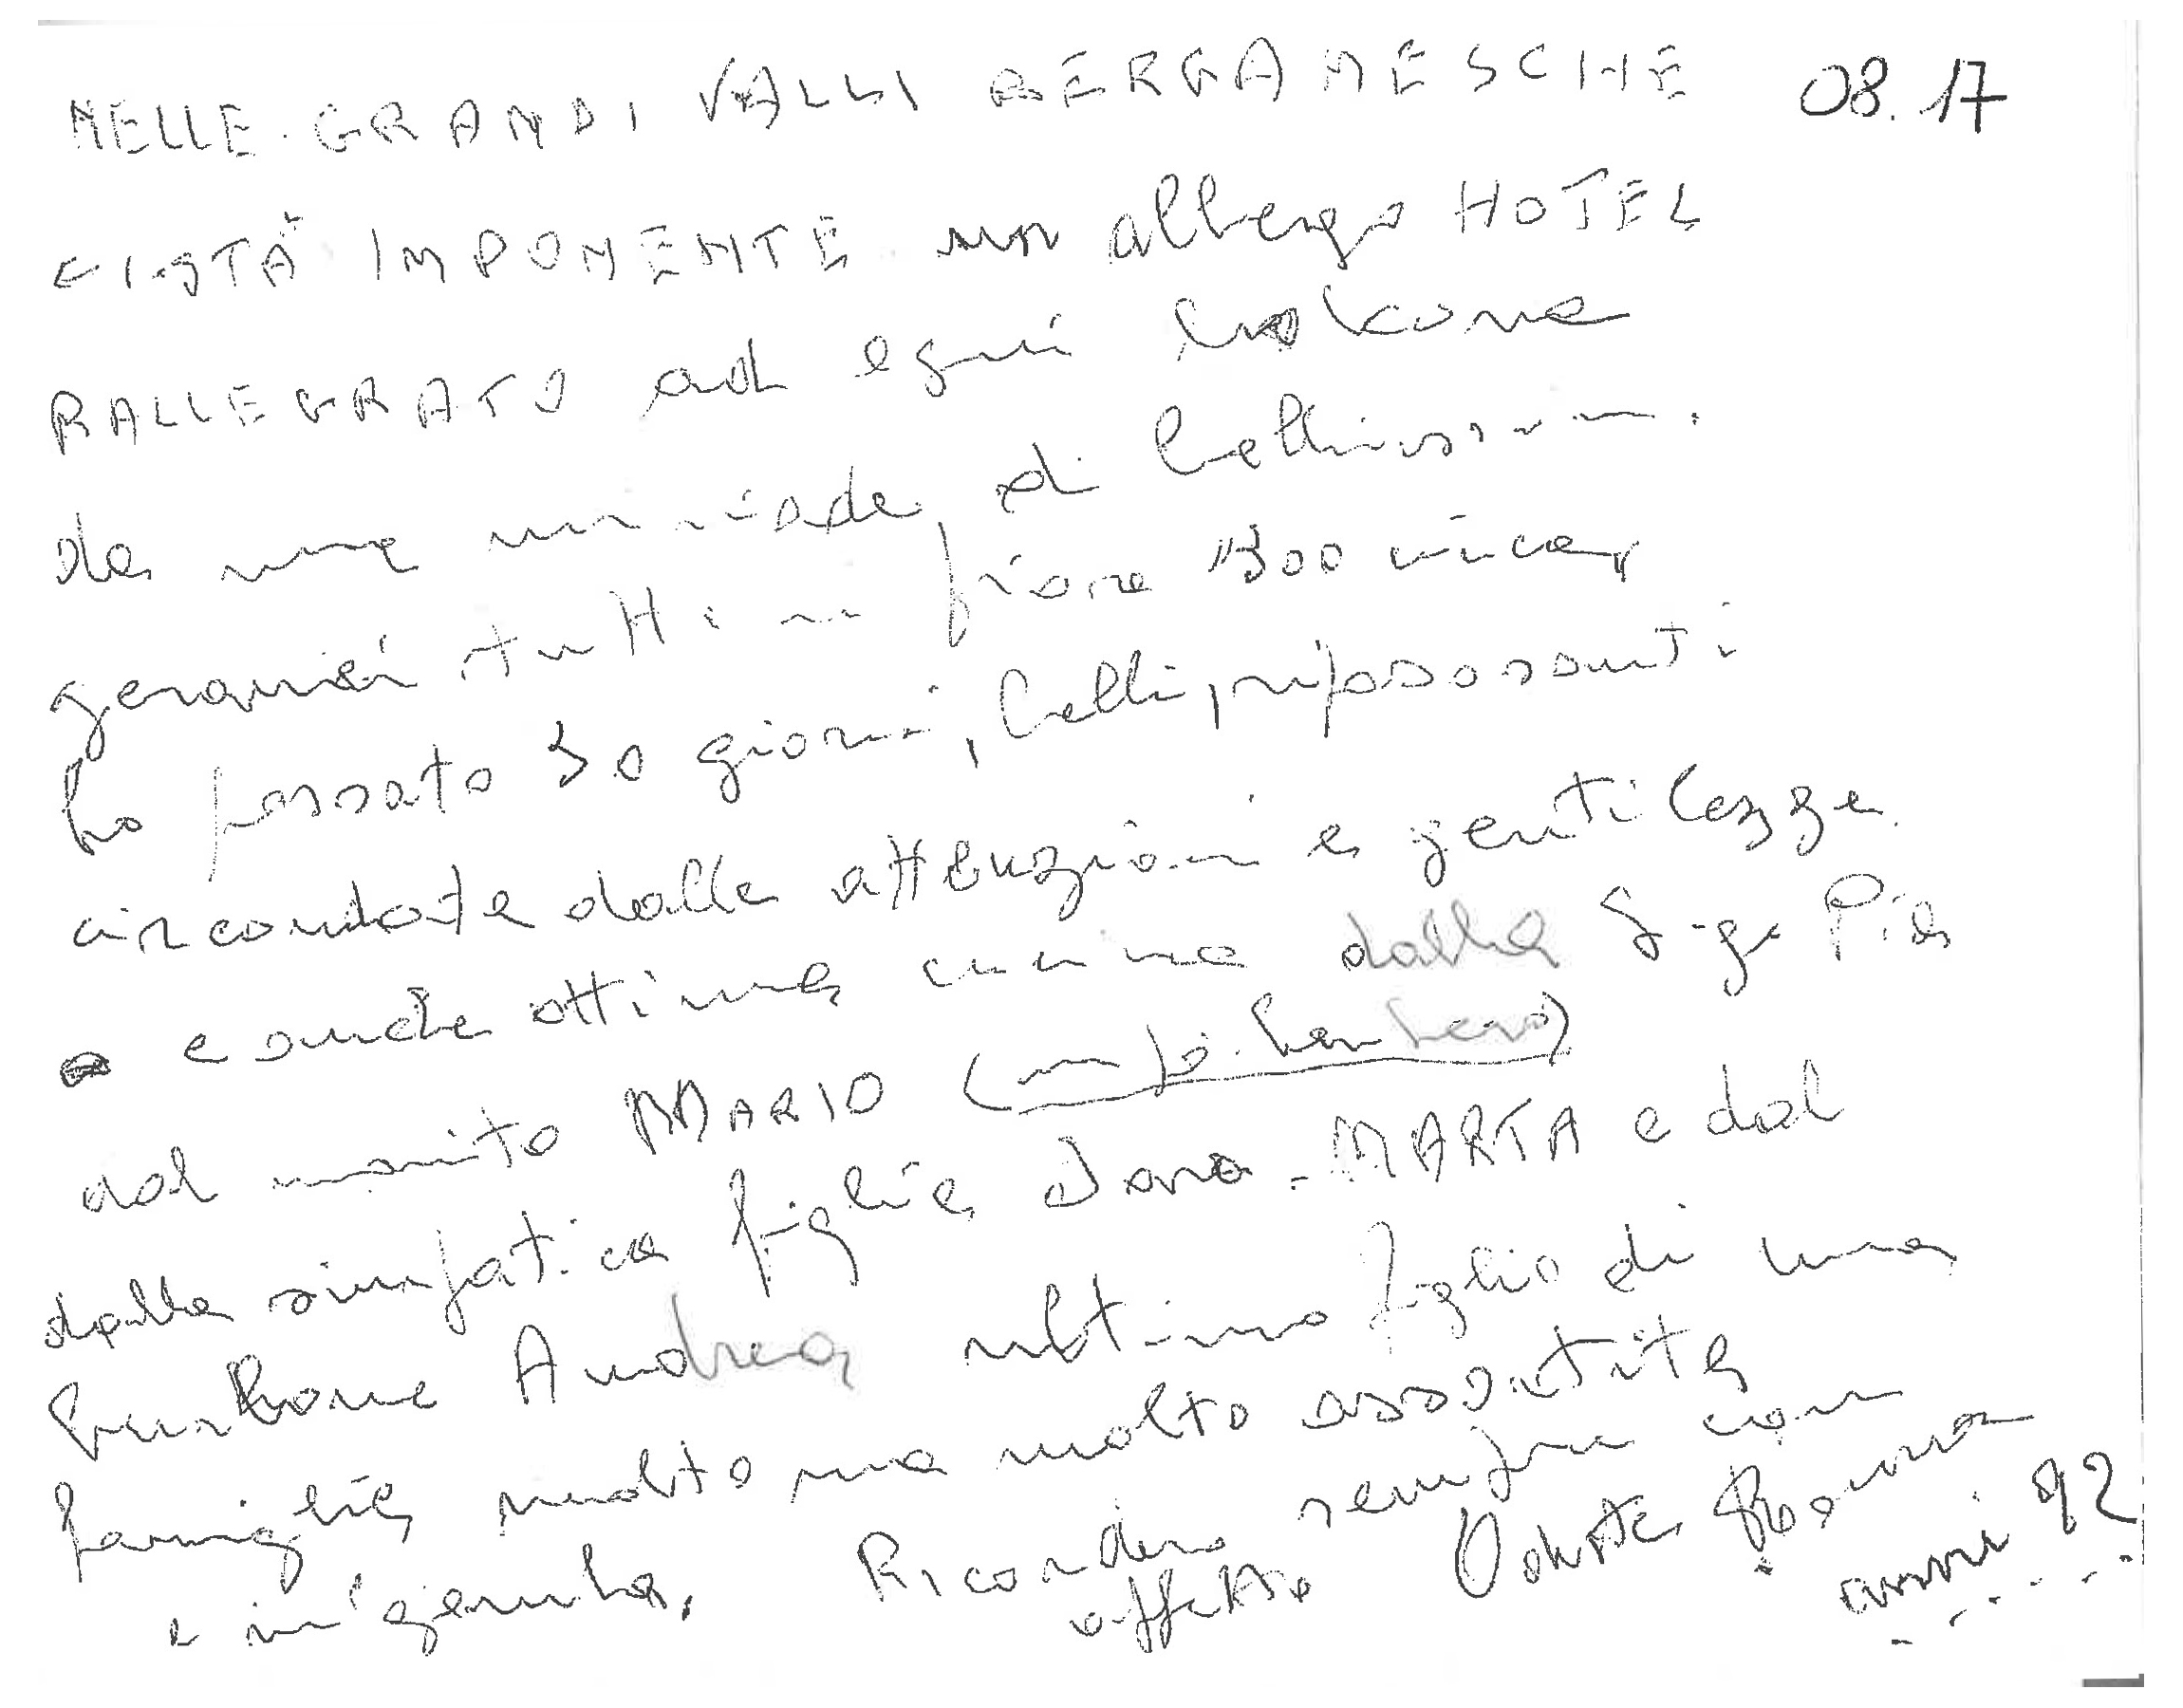 NELLE GRANDI VALLI BERGAMESCHE 08.17
CI STÀ IMPONENTE un albergo HOTEL
RALLEGRATO ad ogni balcone
da una miriade di bellissimi
gerani tutti in fiore
ho passato 30 giorni, belli, riposanti
circondata dalle attenzioni e gentilezze
e anche ottima cucina dalla Sig. Pia
dal marito MARIO
dalla simpatica figlia MARTA e dal
Andrea ultimo figlio di una
famiglia molto ma molto assortita
Ricorderò sempre con
affetto Odette Romna
anni 92